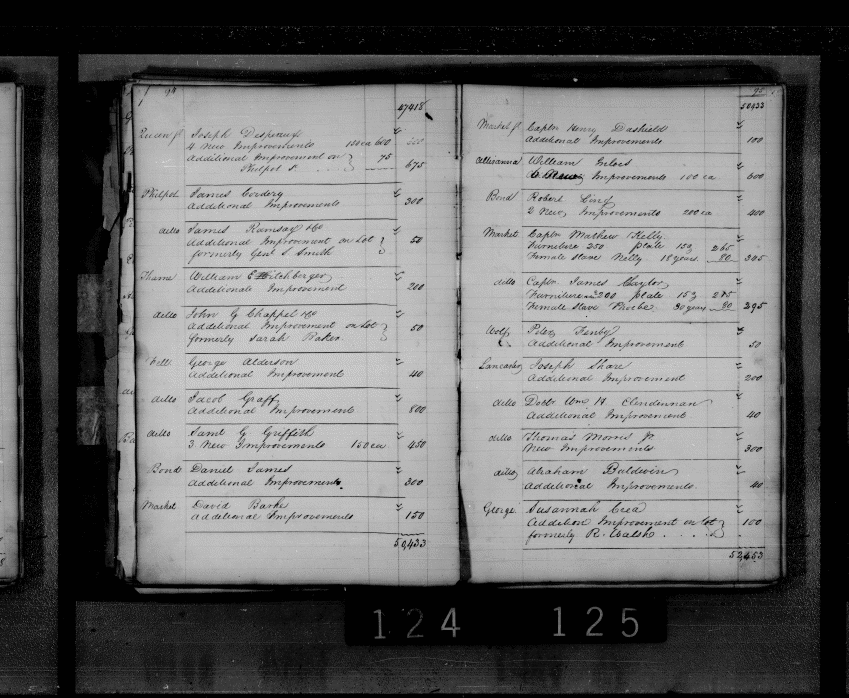 94
47418
Queen St Joseph Despeaux
4 New Improvements 150 ea 600
Additional Improvement on 75
Philpot St. 675
Philpot James Cordery
Additional Improvements 300
ditto James Ramsay
Additional Improvement on Lot
formerly Genl S. Smith 50
Thame William E Hitchberger
Additionale Improvement 200
ditto John G Chappel
Additional Improvement on Lot
formerly Sarah Baker 50
Fell George Alderson
Additional Improvement 40
ditto Jacob Graff
Additional Improvement 800
ditto Saml G Griffith
3 New Improvements 150 ea 450
Bond Daniel James
Additional Improvements 300
Market David Barke
Additional Improvements 150
50433
95
50433
Market St Captn Henry Dashield
Additional Improvements 100
Allisanna William Inloes
Improvements 100 ea 600
Bond Robert Ling
2 New Improvements 200 ea 400
Market Captn Mathew Kelly
Furniture 250 plate 15 265
Female slave Nelly 18 years 80 345
ditto Captn James Taylor
Furniture 200 plate 15 215
Female Slave Phoebe 30 years 80 295
Wolf Peter Fenby
Additional Improvements 50
Lancaster Joseph Share
Additional Improvement 200
ditto Doctr Wm H. Clendennan
Additional Improvement 40
ditto Thomas Morris Jr
New Improvements 300
ditto Abraham Baldwin
Additional Improvements 40
George Susannah Crea
Addition Improvement on Lot 100
formerly R. Walsh
52453
124 125